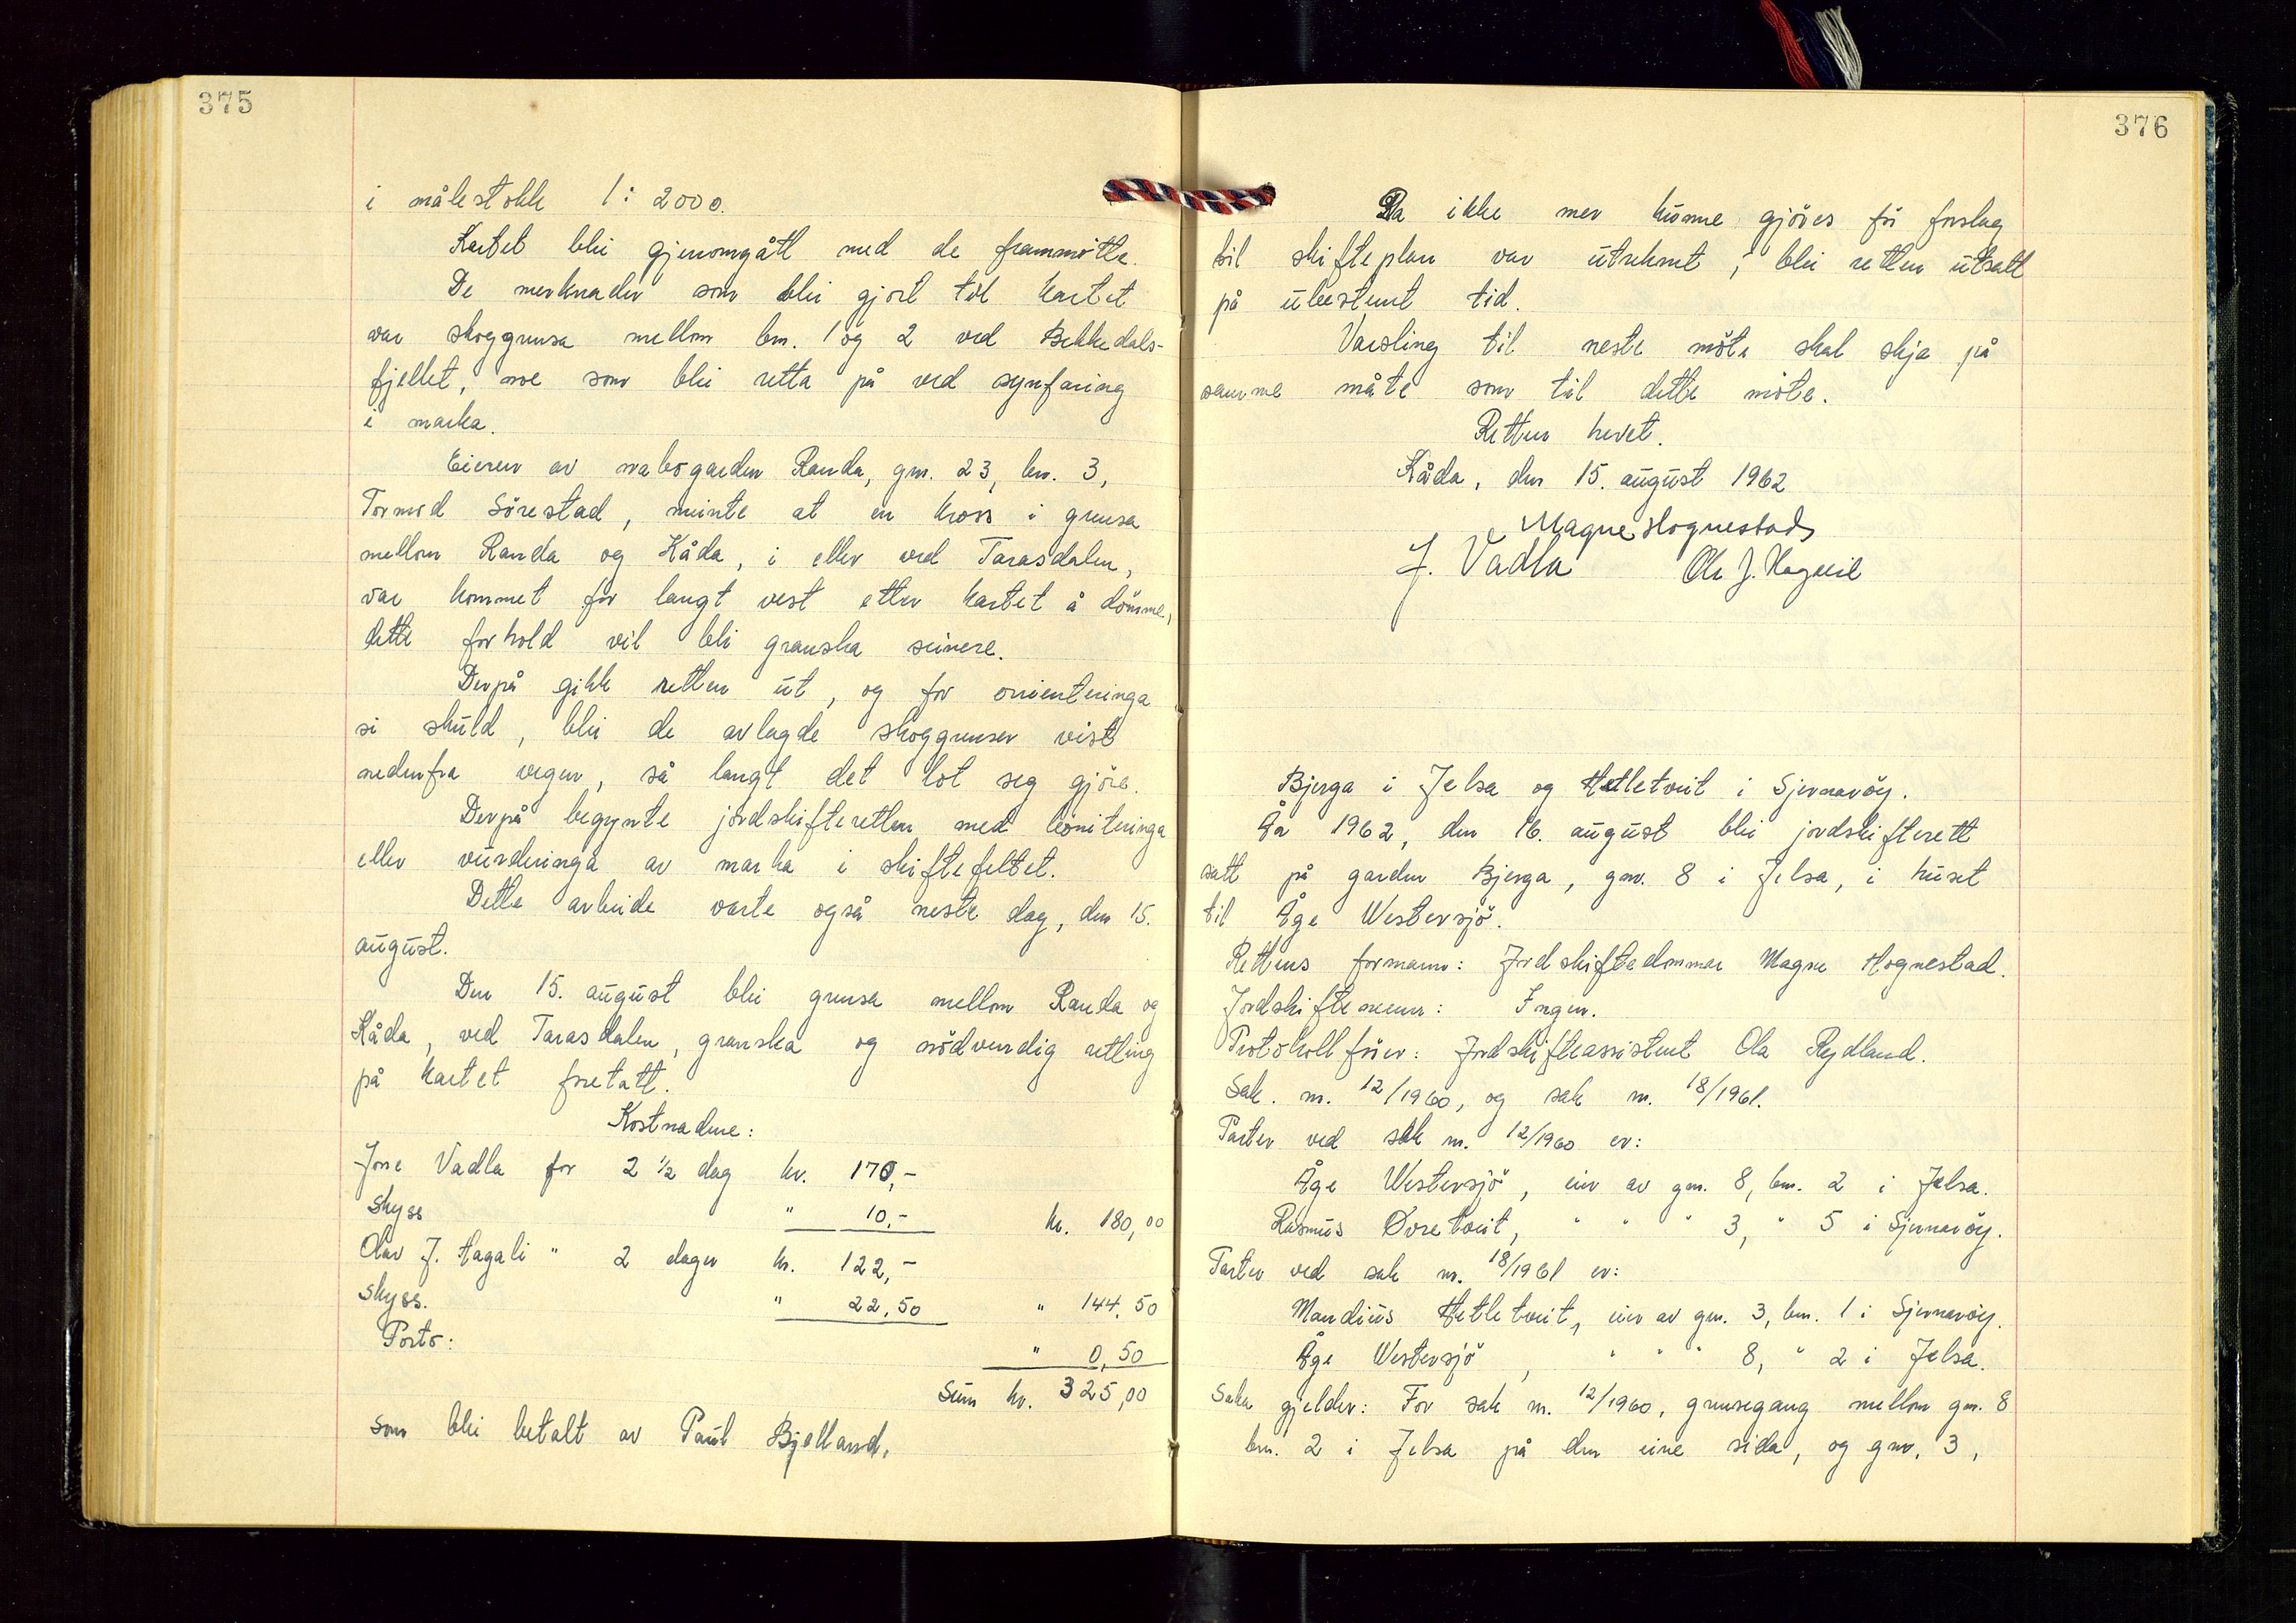 375
i målestokk 1:2000.
Kartet blei gjennomgått med de frammøtte.
De merknader som blei gjort til kartet
var skoggrensa mellom bnr. 1 og 2 ved Bekkedals-
fjellet, noe som blei retta på ved synfaring
i marka.
Eieren av nabogarden Randa, gnr. 23, bnr. 3,
Tormod Sörestad, meinte at en kross i grensa
mellom Randa og Kåda, i eller ved Tarasdalen,
var kommet for langt vest etter kartet å dömme,
dette forhold vil bli granska seinere.
Derpå gikk retten ut, og for orienteringa
si skuld, blei de avlagde skoggrenser vist
nedenfra vegen, så langt det lot seg gjöre.
Derpå begynte jordskifteretten med boniteringa
eller vurderinga av marka i skiftefeltet.
Dette arbeide varte også neste dag, den 15.
august.
Den 15. august blei grensa mellom Randa og
Kåda, ved Tarasdalen, granska og nödvendig retting
på kartet foretatt.
Kostnadene:
Jone Vadla for 2 1/2 dag kr. 170,-
Skyss " 10,- kr. 180,00
Olav J. Hagali " 2 dager kr. 122,-
Skyss. " 22,50 " 144,50
Porto: " 0,50
Sum kr. 325,00
som blei betalt av Paul Bjelland.
376
Da ikke mer kunne gjöres för forslag
til skifteplan var utreknet, blei retten utsatt
på ubestemt tid.
Varsling til neste möte skal skje på
samme måte som til dette möte.
Retten hevet.
Kåda, den 15. august 1962
Magne Hognestad
J. Vadla Ola J. Hagali
Bjerga i Jelsa og Hetletveit i Sjernaröy.
År 1962, den 16. august blei jordskifterett
satt på garden Bjerga, gnr. 8 i Jelsa, i huset
til Åge Westersjö.
Rettens formann: Jordskiftedommar Magne Hognestad.
Jordskiftemenn: Ingen.
Protokollförer: Jordskifteassistent Ola Rydland.
Sak. nr. 12/1960, og sak nr. 18/1961.
Parter ved sak nr. 12/1960 er:
Åge Westersjö, eier av gnr. 8, bnr. 2 i Jelsa.
Rasmus Øvretveit, " " " 3, " 5 i Sjernaröy.
Parter ved sak nr. 18/1961 er:
Mandius Hetletveit, eier av gnr. 3, bnr. 1 i Sjernaröy.
Åge Westersjö, " " " 8, " 2 i Jelsa.
Saka gjelder: For sak nr. 12/1960, grensegang mellom gnr. 8
bnr. 2 i Jelsa på den eine sida, og gnr. 3,